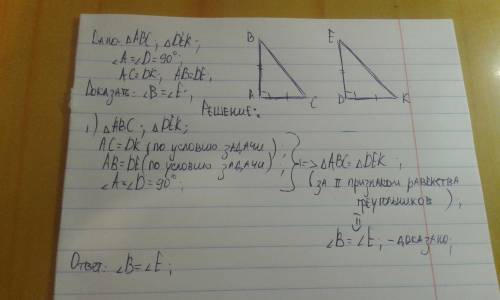 Дано: △ABC; △DEK;
∠A=∠D=90°;
AC=DK; AB=DE;
Доказать: ∠B=∠E;
B
A
C
E
D
K
Решение:
1) △ABC; △DEK;
AC=DK (по условию задачи);
AB=DE (по условию задачи);
∠A=∠D=90°;
=> △ABC=△DEK
(за II признаком равенства
треугольников);
⇓
∠B=∠E; - доказано;
Ответ: ∠B=∠E;